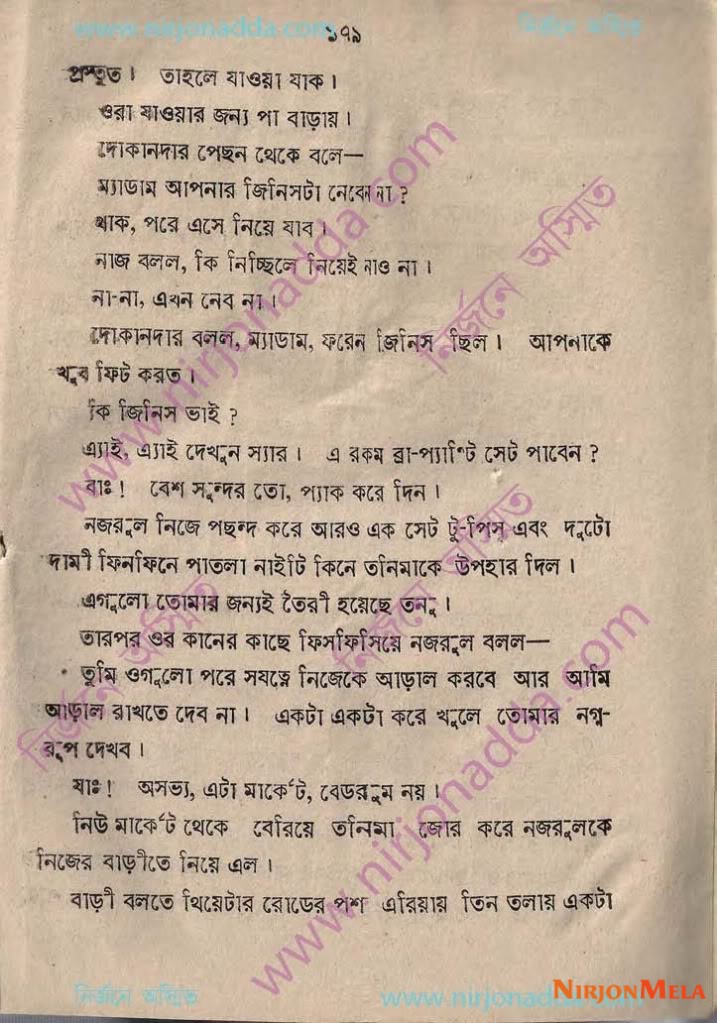 www.nirjonadda.com নির্জনে অস্মিত
১৭৯
প্রস্তুত। তাহলে যাওয়া যাক।
ওরা যাওয়ার জন্য পা বাড়ায়।
দোকানদার পেছন থেকে বলে—
ম্যাডাম আপনার জিনিসটা নেবেন না?
থাক, পরে এসে নিয়ে যাব।
নাজ বলল, কি নিচ্ছিলে নিয়েই নাও না।
না-না, এখন নেব না।
দোকানদার বলল, ম্যাডাম, ফরেন জিনিস ছিল। আপনাকে
খুব ফিট করত।
কি জিনিস ভাই?
এ্যাই, এ্যাই দেখুন স্যার। এ রকম ব্রা-প্যাণ্টি সেট পাবেন?
বাঃ! বেশ সুন্দর তো, প্যাক করে দিন।
নজরুল নিজে পছন্দ করে আরও এক সেট টু-পিস্ এবং দুটো
দামী ফিনফিনে পাতলা নাইটি কিনে তনিমাকে উপহার দিল।
এগুলো তোমার জন্যই তৈরী হয়েছে তনু।
তারপর ওর কানের কাছে ফিসফিসিয়ে নজরুল বলল—
তুমি ওগুলো পরে সযত্নে নিজেকে আড়াল করবে আর আমি
আড়াল রাখতে দেব না। একটা একটা করে খুলে তোমার নগ্ন-
রূপ দেখব।
যাঃ! অসভ্য, এটা মার্কেট, বেডরুম নয়।
নিউ মার্কেট থেকে বেরিয়ে তনিমা জোর করে নজরুলকে
নিজের বাড়ীতে নিয়ে এল।
বাড়ী বলতে থিয়েটার রোডের পশ এরিয়ায় তিন তলায় একটা
www.nirjonadda.com
নির্জনে অস্মিত
www.nirjonadda.com
নির্জনে অস্মিত
নির্জনে অস্মিত
নির্জনে অস্মিত www.nirjonadda.com
NIRJONMELA